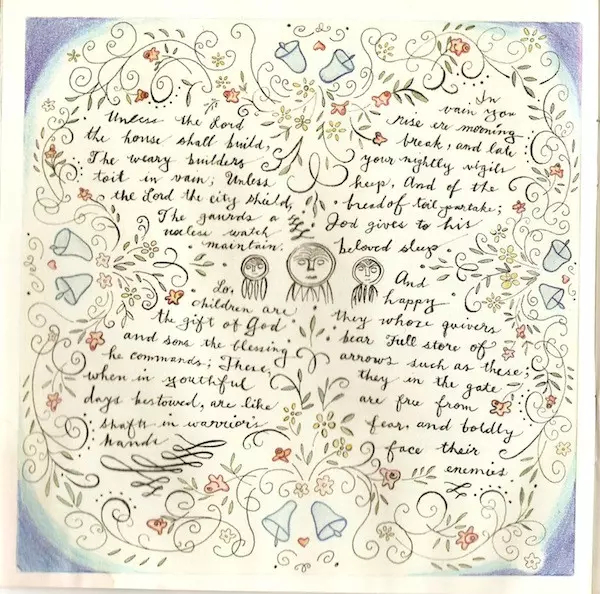 Unless the Lord
the house shall build;
The weary builders
toil in vain; Unless
the Lord the city shield,
The gaurds a
useless watch
maintain.
In
vain you
rise ere morning
break, and late
your nightly vigils
keep, And of the
bread of toil partake;
God gives to his
beloved sleep.
Lo,
children are
the gift of God
and sons the blessing
he commands; These,
when in youthful
days bestowed, are like
shafts in warriors
hands
And
happy
they whose quivers
bear Full store of
arrows such as these;
they in the gate
are free from
fear, and boldly
face their
enemies